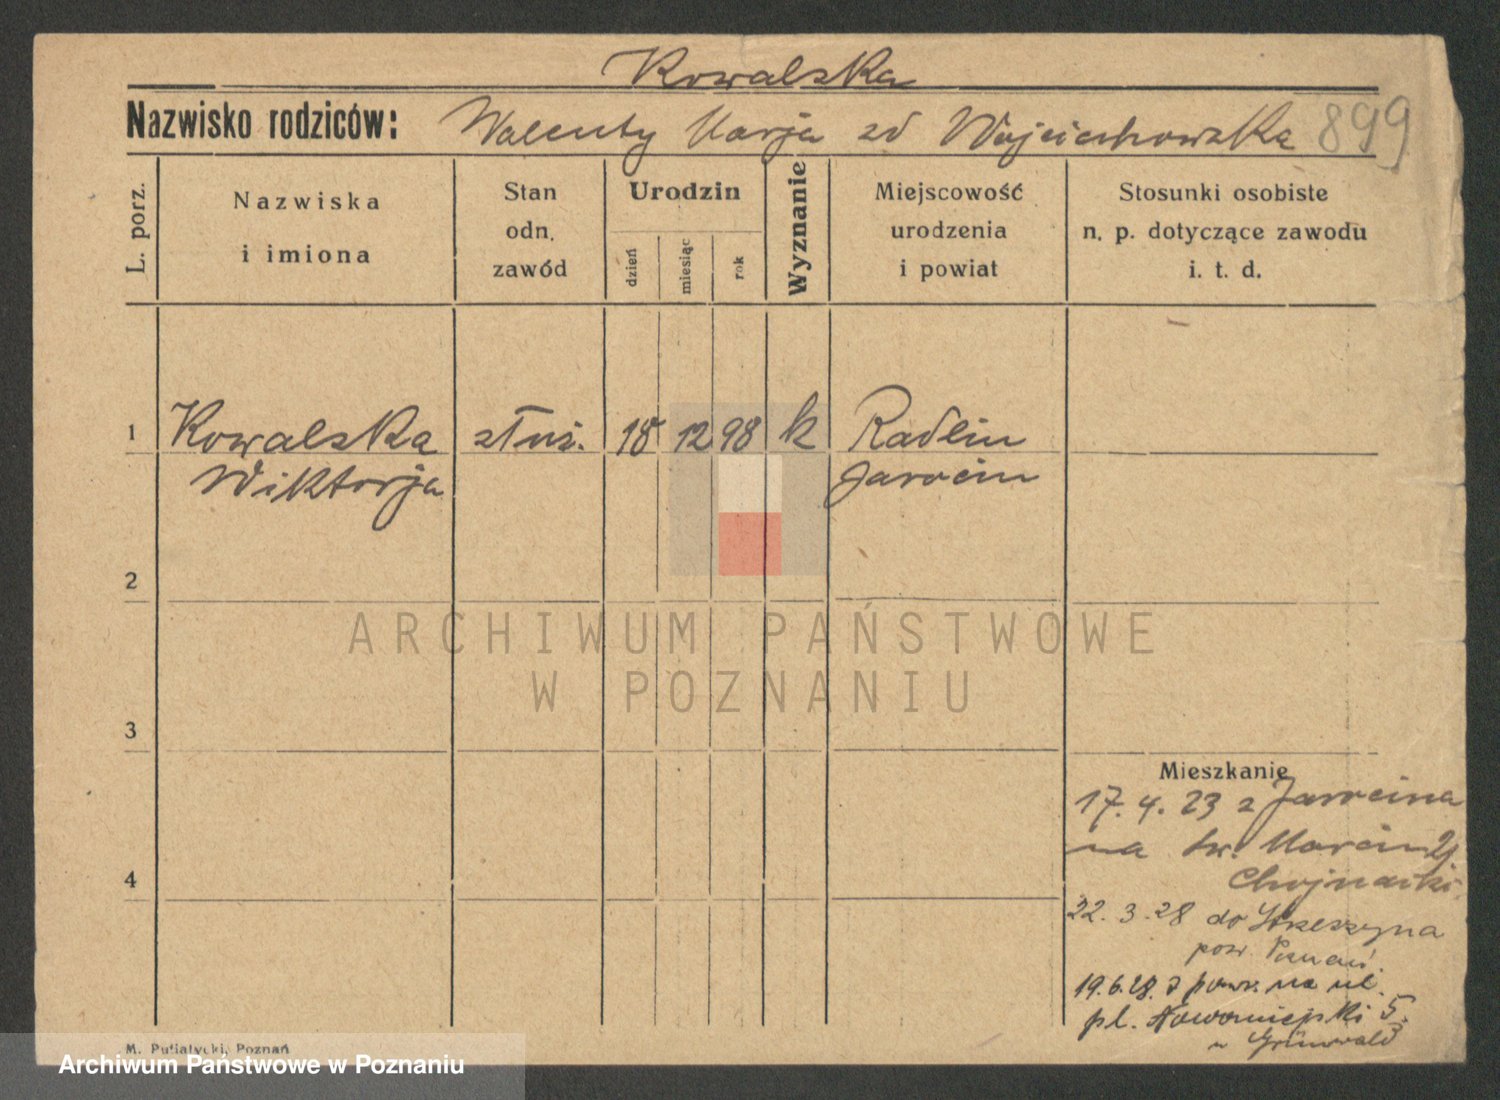 Kowalska
Nazwisko rodziców: Walenty Marja zd Wojciechowska 899
L. porz.
Nazwiska
i imiona
Stan
odn.
zawód
Urodzin
dzień
miesiąc
rok
Wyznanie
Miejscowość
urodzenia
i powiat
Stosunki osobiste
n. p. dotyczące zawodu
i. t. d.
1 Kowalska służ. 18 12 98 k Radlin
Wiktorja Jarocin
2
ARCHIWUM PAŃSTWOWE
W POZNANIU
3
Mieszkanie
17. 4. 23 z Jarocina
na św. Marcin
4
Chojnacki
22. 3. 28 do Strzeszyna
pow. Poznań
19.6.28. z pow. na ul.
pl. Nowomiejski 5.
u Grünwald
M. Putiatycki, Poznań
Archiwum Państwowe w Poznaniu